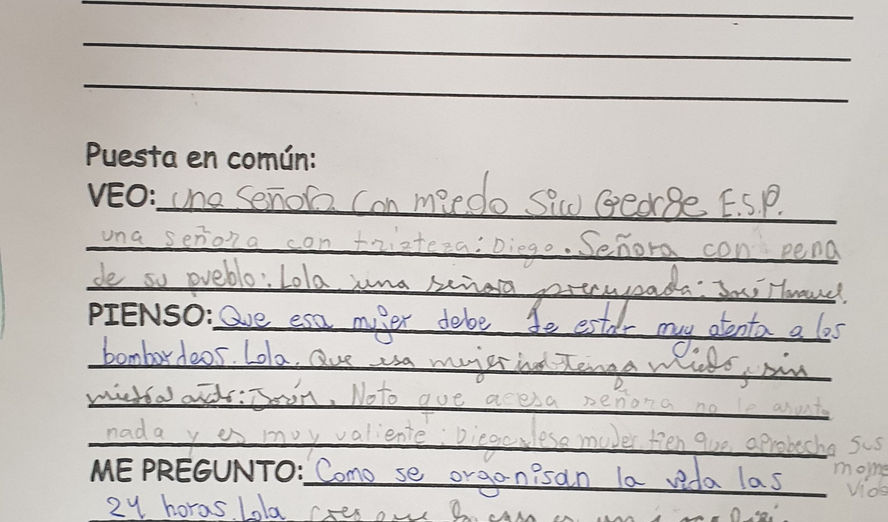 Puesta en común:
VEO: una señora con miedo George E.S.P.
una señora con tristeza: Diego. Señora con pena
de su pueblo: Lola una señora precupada: José Manuel.
PIENSO: Que esa mujer debe de estar muy atenta a los
bombardeos. Lola. Que esa mujer tenga miedo, sin
Noto que a esa señora no le asusta
nada y es muy valiente: Diego esa tien que aprobecha sus
mome
ME PREGUNTO: Como se organisan la vida las
vida
24 horas. Lola